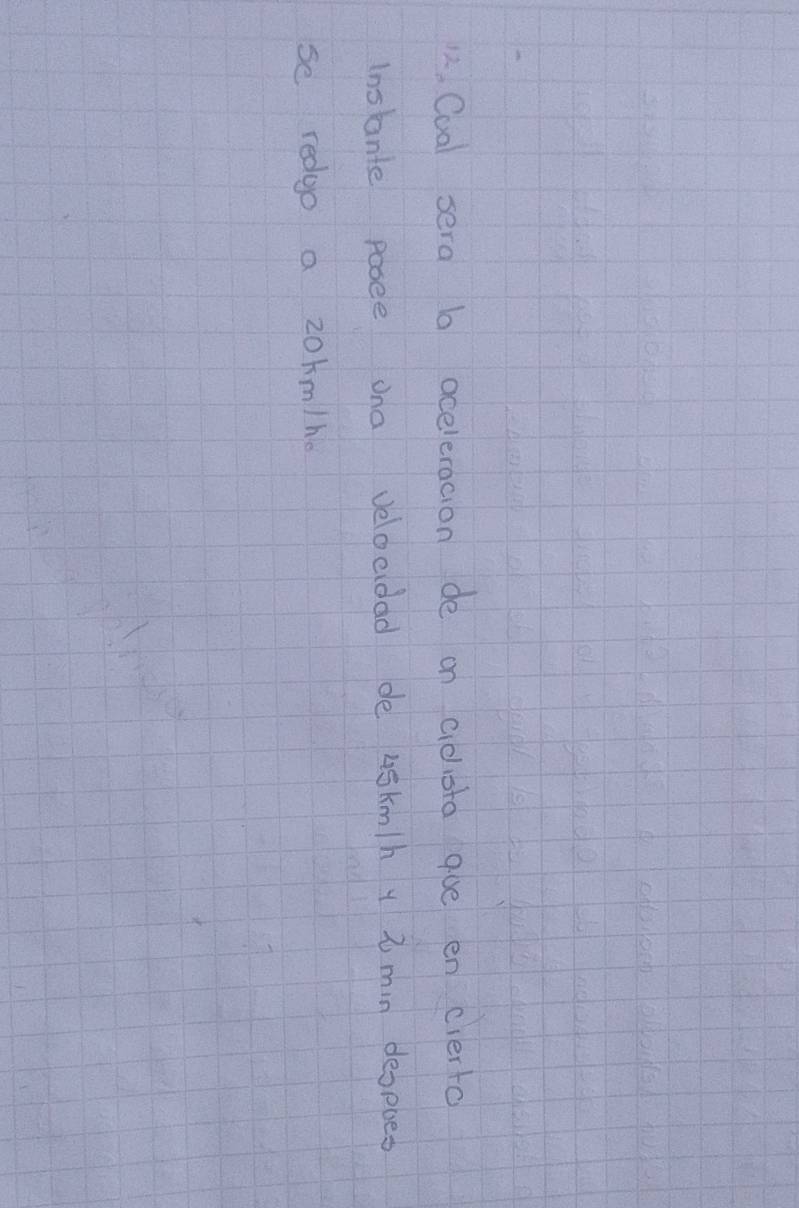 12. Cual sera la aceleracion de on ciclista que en cierto
Instante posee una velocidad de 45km/h y 2 min despues
se redujo a 20km/h.